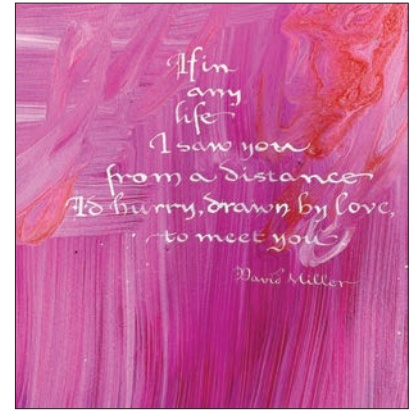 If in
any
life
I saw you
from a distance
I'd hurry, drawn by love,
to meet you
David Miller